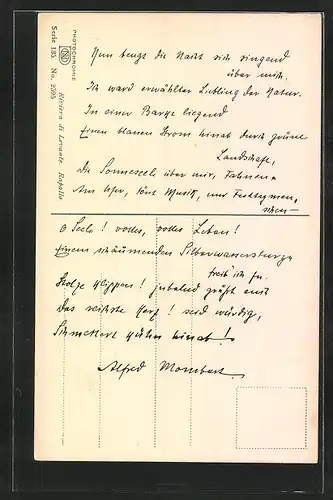 Nun beugt die Nacht sich singend
über mich.
Ich ward erwählter Liebling der Natur.
In einer Barke liegend
Einen blauen Strom hinab durch grüne
Landschaft,
die Sonnenseele über mir, Fahnen
Am Ufer, tönt Musik, und
O Seele! volles, volles Leben!
Einem schäumenden Silberwassersturze
treib' ich zu.
Stolze Klippen! jubelnd grüßt mir
Das reichste Herz! seid würdig,
Schmettert kühn hinab!
Alfred Mombert.
PHOTOCHROMIE
Serie 185. No. 2095
Riviera di Levante. Rapallo